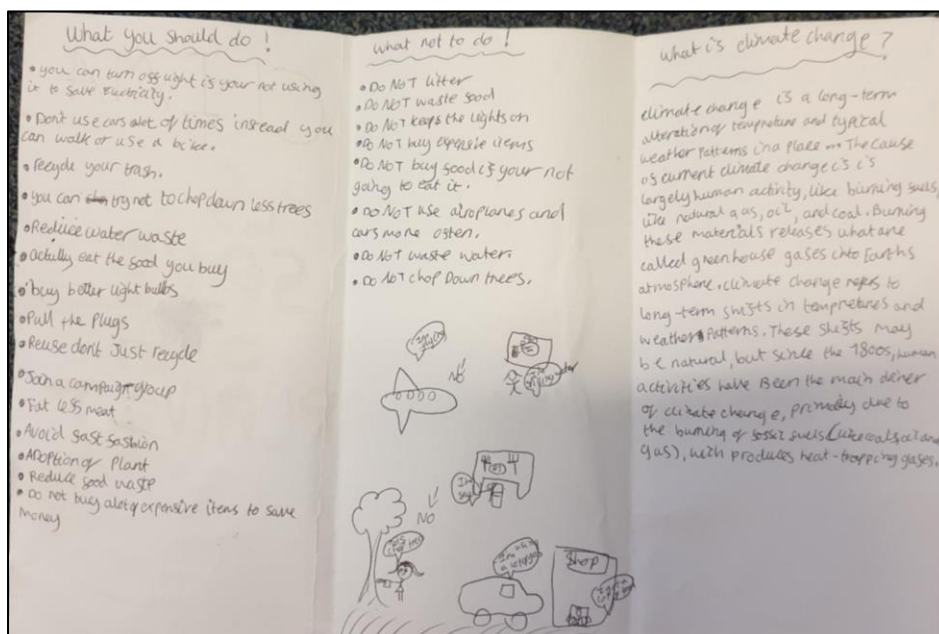 What you should do !
• you can turn off light is your not using
it to save Electricity.
• Don't use cars alot of times instead you
can walk or use a bike.
• recycle your trash.
• you can try not to chop down less trees
• Reduce water waste
• actully eat the food you buy
• buy better light bulbs
• Pull the plugs
• Reuse dont Just recycle
• Join a campaign group
• Eat less meat
• Avoid fast fashion
• ADoption of Plant
• Reduce food waste
• Do not buy alot of expensive items to save
money
What not to do !
• Do NOT litter
• Do NOT waste food
• Do NOT keeps the lights on
• Do NOT buy expensive items
• Do NOT buy food if your not
going to eat it.
• Do NOT use airoplanes and
cars more often.
• Do NOT waste water.
• Do NOT chop Down trees.
NO
NO
Shop
What is climate change ?
climate change is a long-term
alteration of tempreture and typical
weather Patterns in a place ... The cause
of current climate change is is
largely human activity, like burning fuels,
like natural gas, oil, and coal. Burning
these materials releases what are
called greenhouse gases into Earths
atmosphere. climate change refers to
long-term shifts in tempretures and
weather Patterns. These shifts may
be natural, but since the 1800s, human
activities have Been the main driver
of climate change, primarily due to
the burning of fossil fuels (like coal, oil and
gas), wich produces heat-trapping gases.